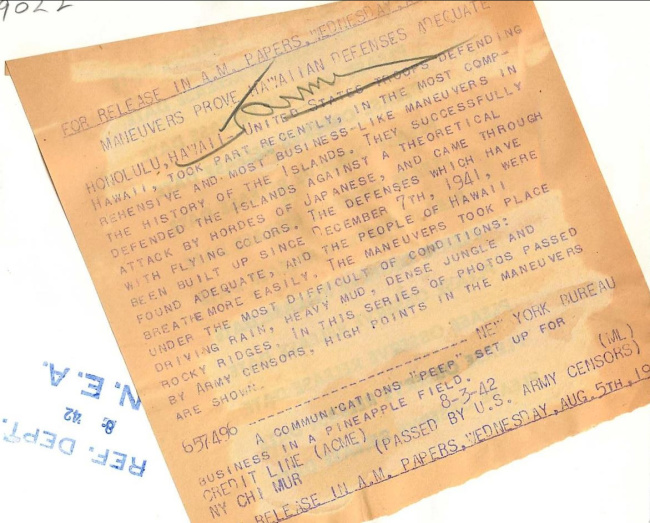 9022
FOR RELEASE IN A.M. PAPERS, WEDNESDAY,
MANEUVERS PROVE HAWAIIAN DEFENSES ADEQUATE
HONOLULU, HAWAII, UNITED STATES TROOPS DEFENDING
HAWAII, TOOK PART RECENTLY, IN THE MOST COMP-
REHENSIVE AND MOST BUSINESS-LIKE MANEUVERS IN
THE HISTORY OF THE ISLANDS. THEY SUCCESSFULLY
DEFENDED THE ISLANDS AGAINST A THEORETICAL
ATTACK BY HORDES OF JAPANESE, AND CAME THROUGH
WITH FLYING COLORS. THE DEFENSES WHICH HAVE
BEEN BUILT UP SINCE DECEMBER 7TH, 1941, WERE
FOUND ADEQUATE, AND THE PEOPLE OF HAWAII
BREATHE MORE EASILY. THE MANEUVERS TOOK PLACE
UNDER THE MOST DIFFICULT OF CONDITIONS:
DRIVING RAIN, HEAVY MUD, DENSE JUNGLE AND
ROCKY RIDGES. IN THIS SERIES OF PHOTOS PASSED
BY ARMY CENSORS, HIGH POINTS IN THE MANEUVERS
ARE SHOWN.
NEW YORK BUREAU
657496
A COMMUNICATIONS "PEEP" SET UP FOR
BUSINESS IN A PINEAPPLE FIELD. (ML)
CREDIT LINE (ACME) 8-3-42
NY CHI MUR (PASSED BY U.S. ARMY CENSORS)
RELEASE IN A.M. PAPERS, WEDNESDAY, AUG. 5TH, 19
REF. DEPT.
8 '42
N.E.A.